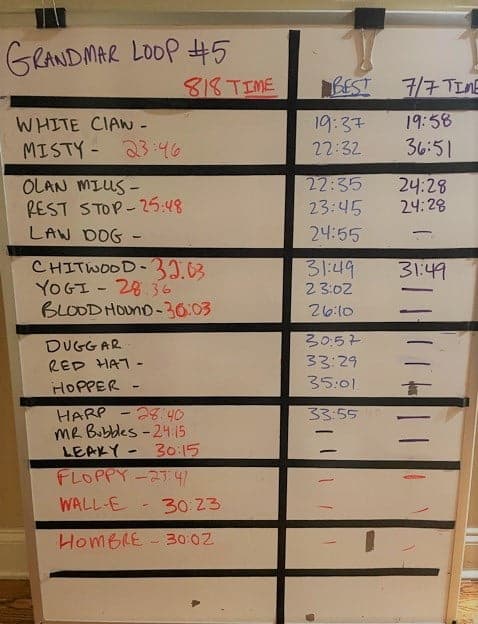 GRANDMAR LOOP #5
8/8 TIME BEST 7/7 TIME
WHITE CLAW - 19:37 19:58
MISTY - 23:46 22:32 36:51
OLAN MILLS - 22:35 24:28
REST STOP - 25:48 23:45 24:28
LAW DOG - 24:55 —
CHITWOOD - 32:03 31:49 31:49
YOGI - 28:36 23:02 —
BLOODHOUND - 30:03 26:10 —
DUGGAR 30:57 —
RED HAT - 33:29 —
HOPPER - 35:01 —
HARP - 28:40 33:55 —
MR Bubbles - 24:15 — —
LEAKY - 30:15 —
FLOPPY - 27:41 — —
WALL-E - 30:23 — —
HOMBRE - 30:02 — —